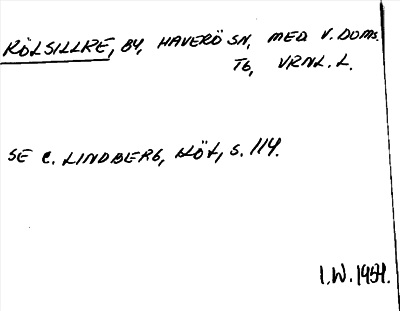 RÖLSILLRE, BY, HAVERÖ SN, MED V. DOMS.
TG, VRNL. L.
SE C. LINDBERG, KLÖV, S. 114.
I.W. 1951.